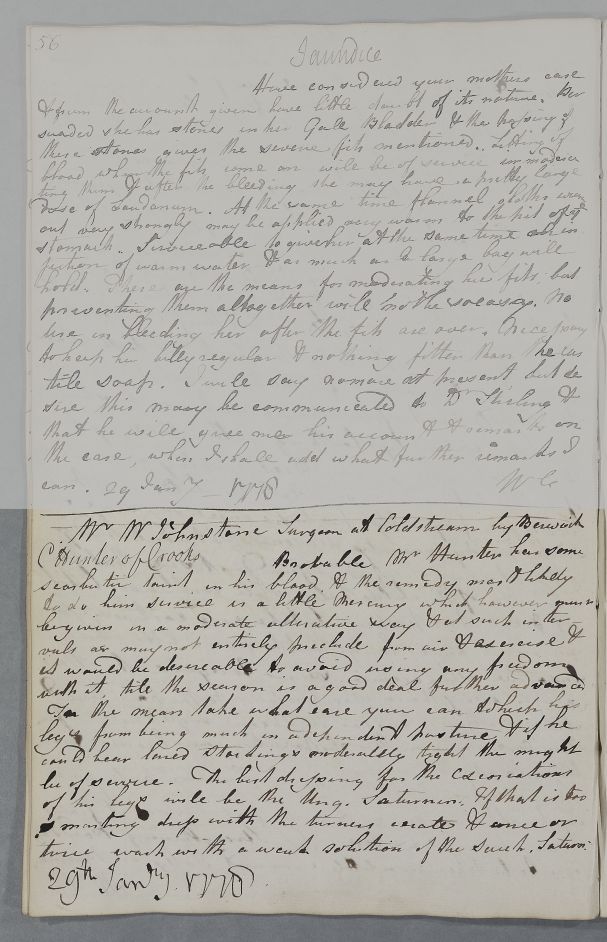 56
Jaundice
Have considered your mothers case
& from the account given have little doubt of its nature. Per
suaded she has stones in her Gall Bladder & the passing of
these stones gives the severe fits mentioned. Letting of
blood when the fits come on will be of service in modera
ting them & after the bleeding she may have a pretty large
Dose of Laudanum. At the same time flannel cloths wrun
out very strongly may be applied very warm to the pit of ye
stomach. Serviceable to give her at the same time an in
jection of warm water & as much as a large bag will
hold. These are the means for moderating her fits, but
preventing them altogether will be not so easy. No
use in bleeding her after the fits are over. Necessary
to keep her belly regular & nothing fitter than the cas
tile soap. I will say no more at present but de
sire this may be communicated to Dr Stirling &
that he will give me his account & remarks on
the case, when I shall add what further remarks I
can. 29 Jany 1778 W C
Mr W Johnstone Surgeon at Coldstream by Berwick
C Hunter of Crooks Probable Mr Hunter has some
scorbutic taint in his blood & the remedy most likely
to do him service is a little Mercury which however must
be given in a moderate alterative way & at such inter
vals as may not entirely preclude from air & exercise &
it would be desireable to avoid using any freedom
with it, till the season is a good deal further advanced
In the mean take what care you can to keep his
legs from being much in a dependent posture & if he
could bear laced stockings moderately tight the might
be of service. The best dressing for the excoriations
of his legs will be the Ung. Saturnin. If that is too
smarting dress with the turners cerate & once or
twice wash with a weak solution of the Sacch. Saturni
29th Jandry. 1778.